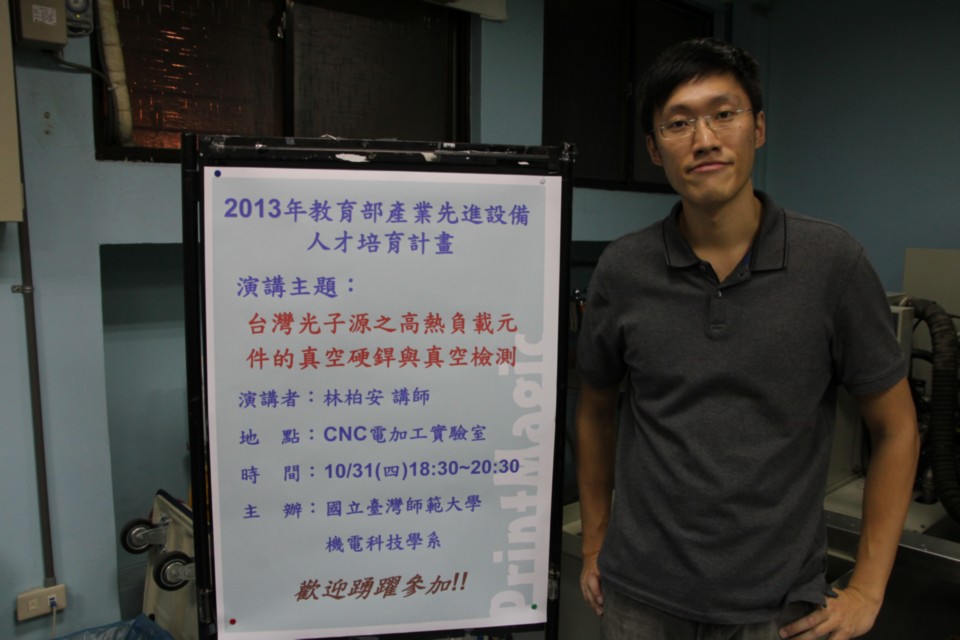 2013年教育部產業先進設備
人才培育計畫
演講主題：
台灣光子源之高熱負載元
件的真空硬銲與真空檢測
演講者：林柏安 講師
地　點：CNC電加工實驗室
時　間：10/31(四)18:30~20:30
主　辦：國立臺灣師範大學
機電科技學系
歡迎踴躍參加!!
printMagic